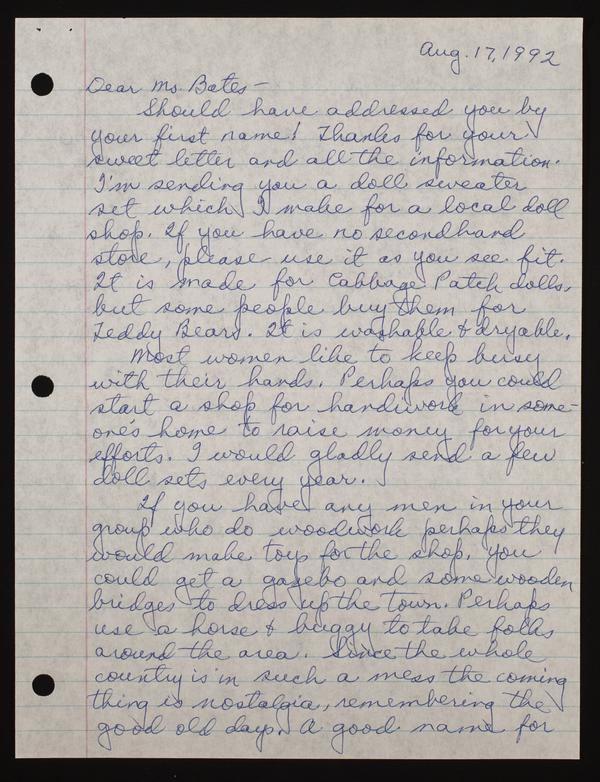 Aug. 17, 1992
Dear Ms. Bates -
Should have addressed you by
your first name! Thanks for your
sweet letter and all the information.
I'm sending you a doll sweater
set which I make for a local doll
shop. If you have no secondhand
store, please use it as you see fit.
It is made for Cabbage Patch dolls,
but some people buy them for
Teddy Bears. It is washable & dryable.
Most women like to keep busy
with their hands. Perhaps you could
start a shop for handiwork in some-
one's home to raise money for your
efforts. I would gladly send a few
doll sets every year.
If you have any men in your
group who do woodwork perhaps they
would make toys for the shop. You
could get a gazebo and some wooden
bridges to dress up the town. Perhaps
use a horse & buggy to take folks
around the area. Since the whole
country is in such a mess the coming
thing is nostalgia, remembering the
good old days. A good name for